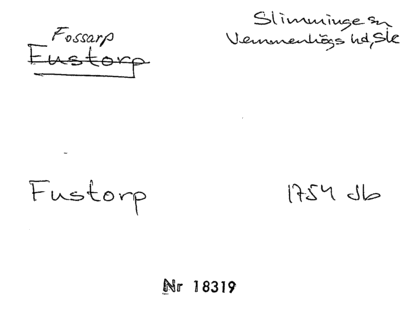 Fossarp
Fustorp
Slimminge sn
Vemmenhögs hd, Sk
Fustorp
1754 Jb
Nr 18319